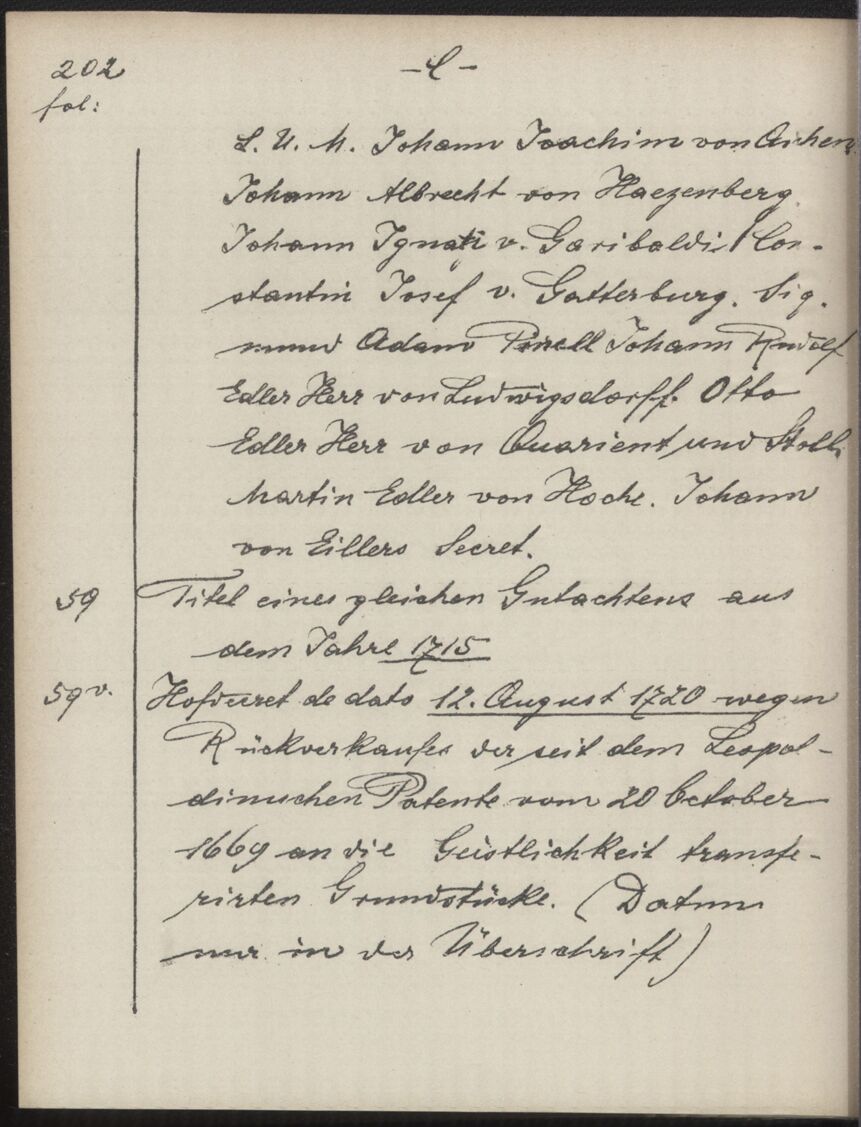 202 - L -
fol:
L. U. M. Johann Joachim von Aichen
Johann Albrecht von Haezenberg
Johann Ignati v. Garibaldi / Con-
stantin Josef v. Gatterburg. Sig.
mund Adam Johann Rudolf
Edler Herr von Ludwigsdorff. Otto
Edler Herr von Quarient und
Martin Edler von Hoche. Johann
von Eillers Secret.
59 Titel eines gleichen Gutachtens aus
dem Jahre 1715
59 v. Hofdecret de dato 12. August 1720 wegen
Rückverkaufes der seit dem Leopol-
dinischen Patente vom 20 October
1669 an die Geistlichkeit transfe-
rirten Grundstücke. (Datum
nur in der Überschrift)